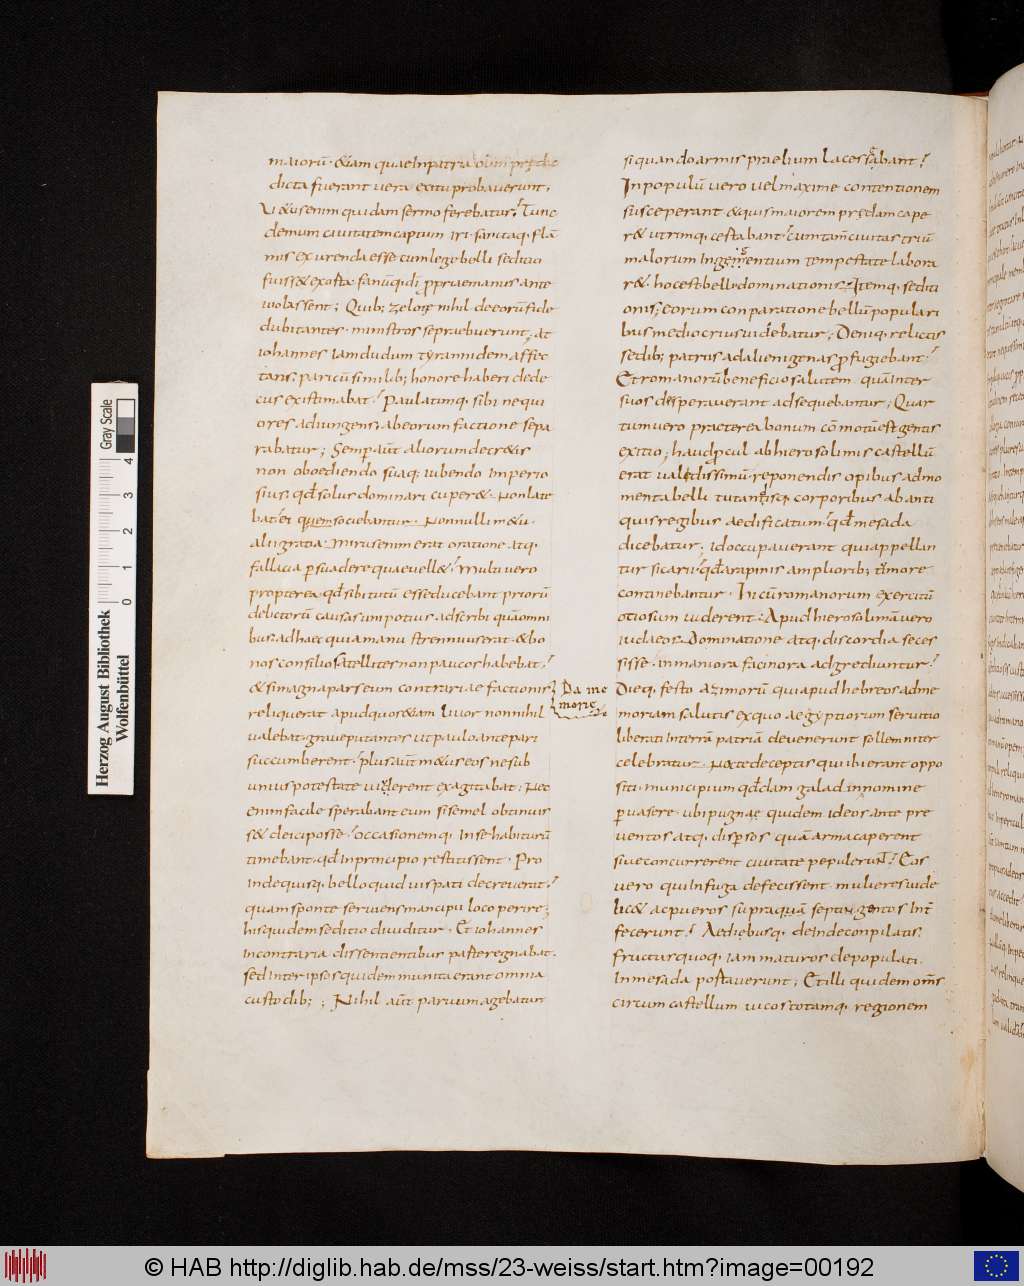 maiorū · &iam quae In patria
dicta fuerant uera exitu probauerunt ;
V & us enim quidam sermo ferebatur ; Tunc
demum ciuitatem captum iri · sanctaq · flā
mis exurenda esse cum lege belli seditio
fuiss& exorta · fanūq · di ppriae manus ante
uiolassent ; Quib ; zelotę nihil de eorū fide
dubitantes · ministros se praebuerunt ; at
iohannes iamdudum tyrannidem affec
tans · paricū similib ; honore haberi dede
cus existimabat · Paulatimq · sibi nequi
ores adiungens · ab eorum factione sepa
rabatur ; Semp aūt aliorum decr&is
non oboediendo suaq · iubendo Imperio
sius · qđ solus dominari cuper& · Non late
bat ei quem sociebantur · Nonnulli m&u ·
alii gratia · Mirus enim erat oratione atq ·
fallicia psuadere quae uell& · Multi uero
propterea · qđ sibi tutū esse ducebant priorū
delictorū causas um potius adscribi quā omni
bus ad haec quia manu strennuus erat · & bo
nos consilio satellites non paucos habebat ·
& si magna pars eum contrariae factionis
reliquerat apud quos &iam liuor nonnihil
ualebat · graue putantes ut paulo ante pari
succumberent · plus aūt m&us eos ne sub
unius potestate uiderent exagitabat · Nec
enim facile sperabant eum si semel obtinuis
s& deici posse · occasionemq · In se habiturū
timebant · qđ In principio restitissent · Pro
Inde quisq · bello quid uis pati decreuerat ·
quam sponte seruiens mancipii loco perire ;
his quidem seditio diuiditur · Et iohannes
In contraria dissentientibus parte regnabat ·
sed Inter ipsos quidem munita erant omnia
custodib ; ; Nihil aūt paruum agebatur
Da me
morię
si quando armis praelium lacessabant ·
In populū uero uel maxime contentionem
susceperant · & quis maiorem prędam cape
r& utrimq · certabant · cum tam ciuitas triū
malorum Ingentium tempestate labora
r& · hoc est belli · dominationis · Itemq · sediti
onis ; eorum conparatione bellū populari
bus mediocrius uidebatur ; Deniq · relictis
sedib ; patriis ad alienigenas pfugiebant ·
Et romanorū beneficio salutem quā Inter
suos desperauerant adsequebantur ; Quar
tum uero praeterea bonum cō motū est gentis
exitio ; haud pcul ab hierosolimis castellū
erat ualidissimū · reponendis opibus ad mo
menta belli tutandisq · corporibus ab anti
quis regibus aedificatum · qđ mesada
dicebatur ; id occupauerant qui appellan
tur sicarii · qđ a rapinis amplioribus timore
continebantur · In cū romanorum exercitū
otiosum uiderent · Apud hierosolimā uero
iudaeos · Dominatione atq · discordia seces
sisse · in maiora facinora adgrediuntur ·
Dieq · festo azimorū qui apud hebreos ad me
moriam salutis ex quo aegyptiorum seruitio
liberati Interrā patriā deuenerunt sollemniter
celebratur · Nocte deceptis qui ibi erant oppo
siti · municipium qđdam galad in nomine
puasere · ubi pugnae quidem ideos ante pre
uentos atq · dispsos quā arma caperent
siue concurrerent ciuitate pepulerunt · Eas
uero qui In fuga defecissent mulieres uide
lic& ac pueros supra quam septingentos Int
fecerunt · Aedibusq · deinde conpilatis ·
fructus quoq · iam maturos depopulati ·
In mesada portauerunt ; Et illi quidem omīs
circum castellum uicos totamq · regionem
Herzog August Bibliothek
Wolfenbüttel
0 1 2 3 4
Gray Scale
© HAB http://diglib.hab.de/mss/23-weiss/start.htm?image=00192